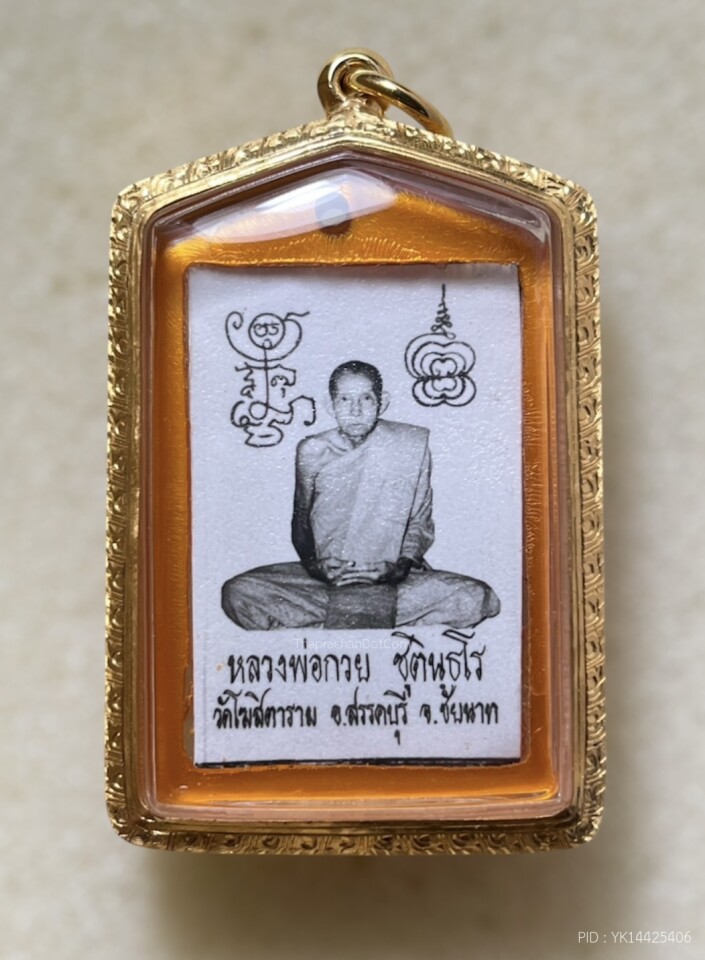 ThaprachanDotCom
หลวงพ่อกวย ชุตินฺธโร
วัดโฆสิตาราม อ.สรรคบุรี จ.ชัยนาท
PID : YK14425406